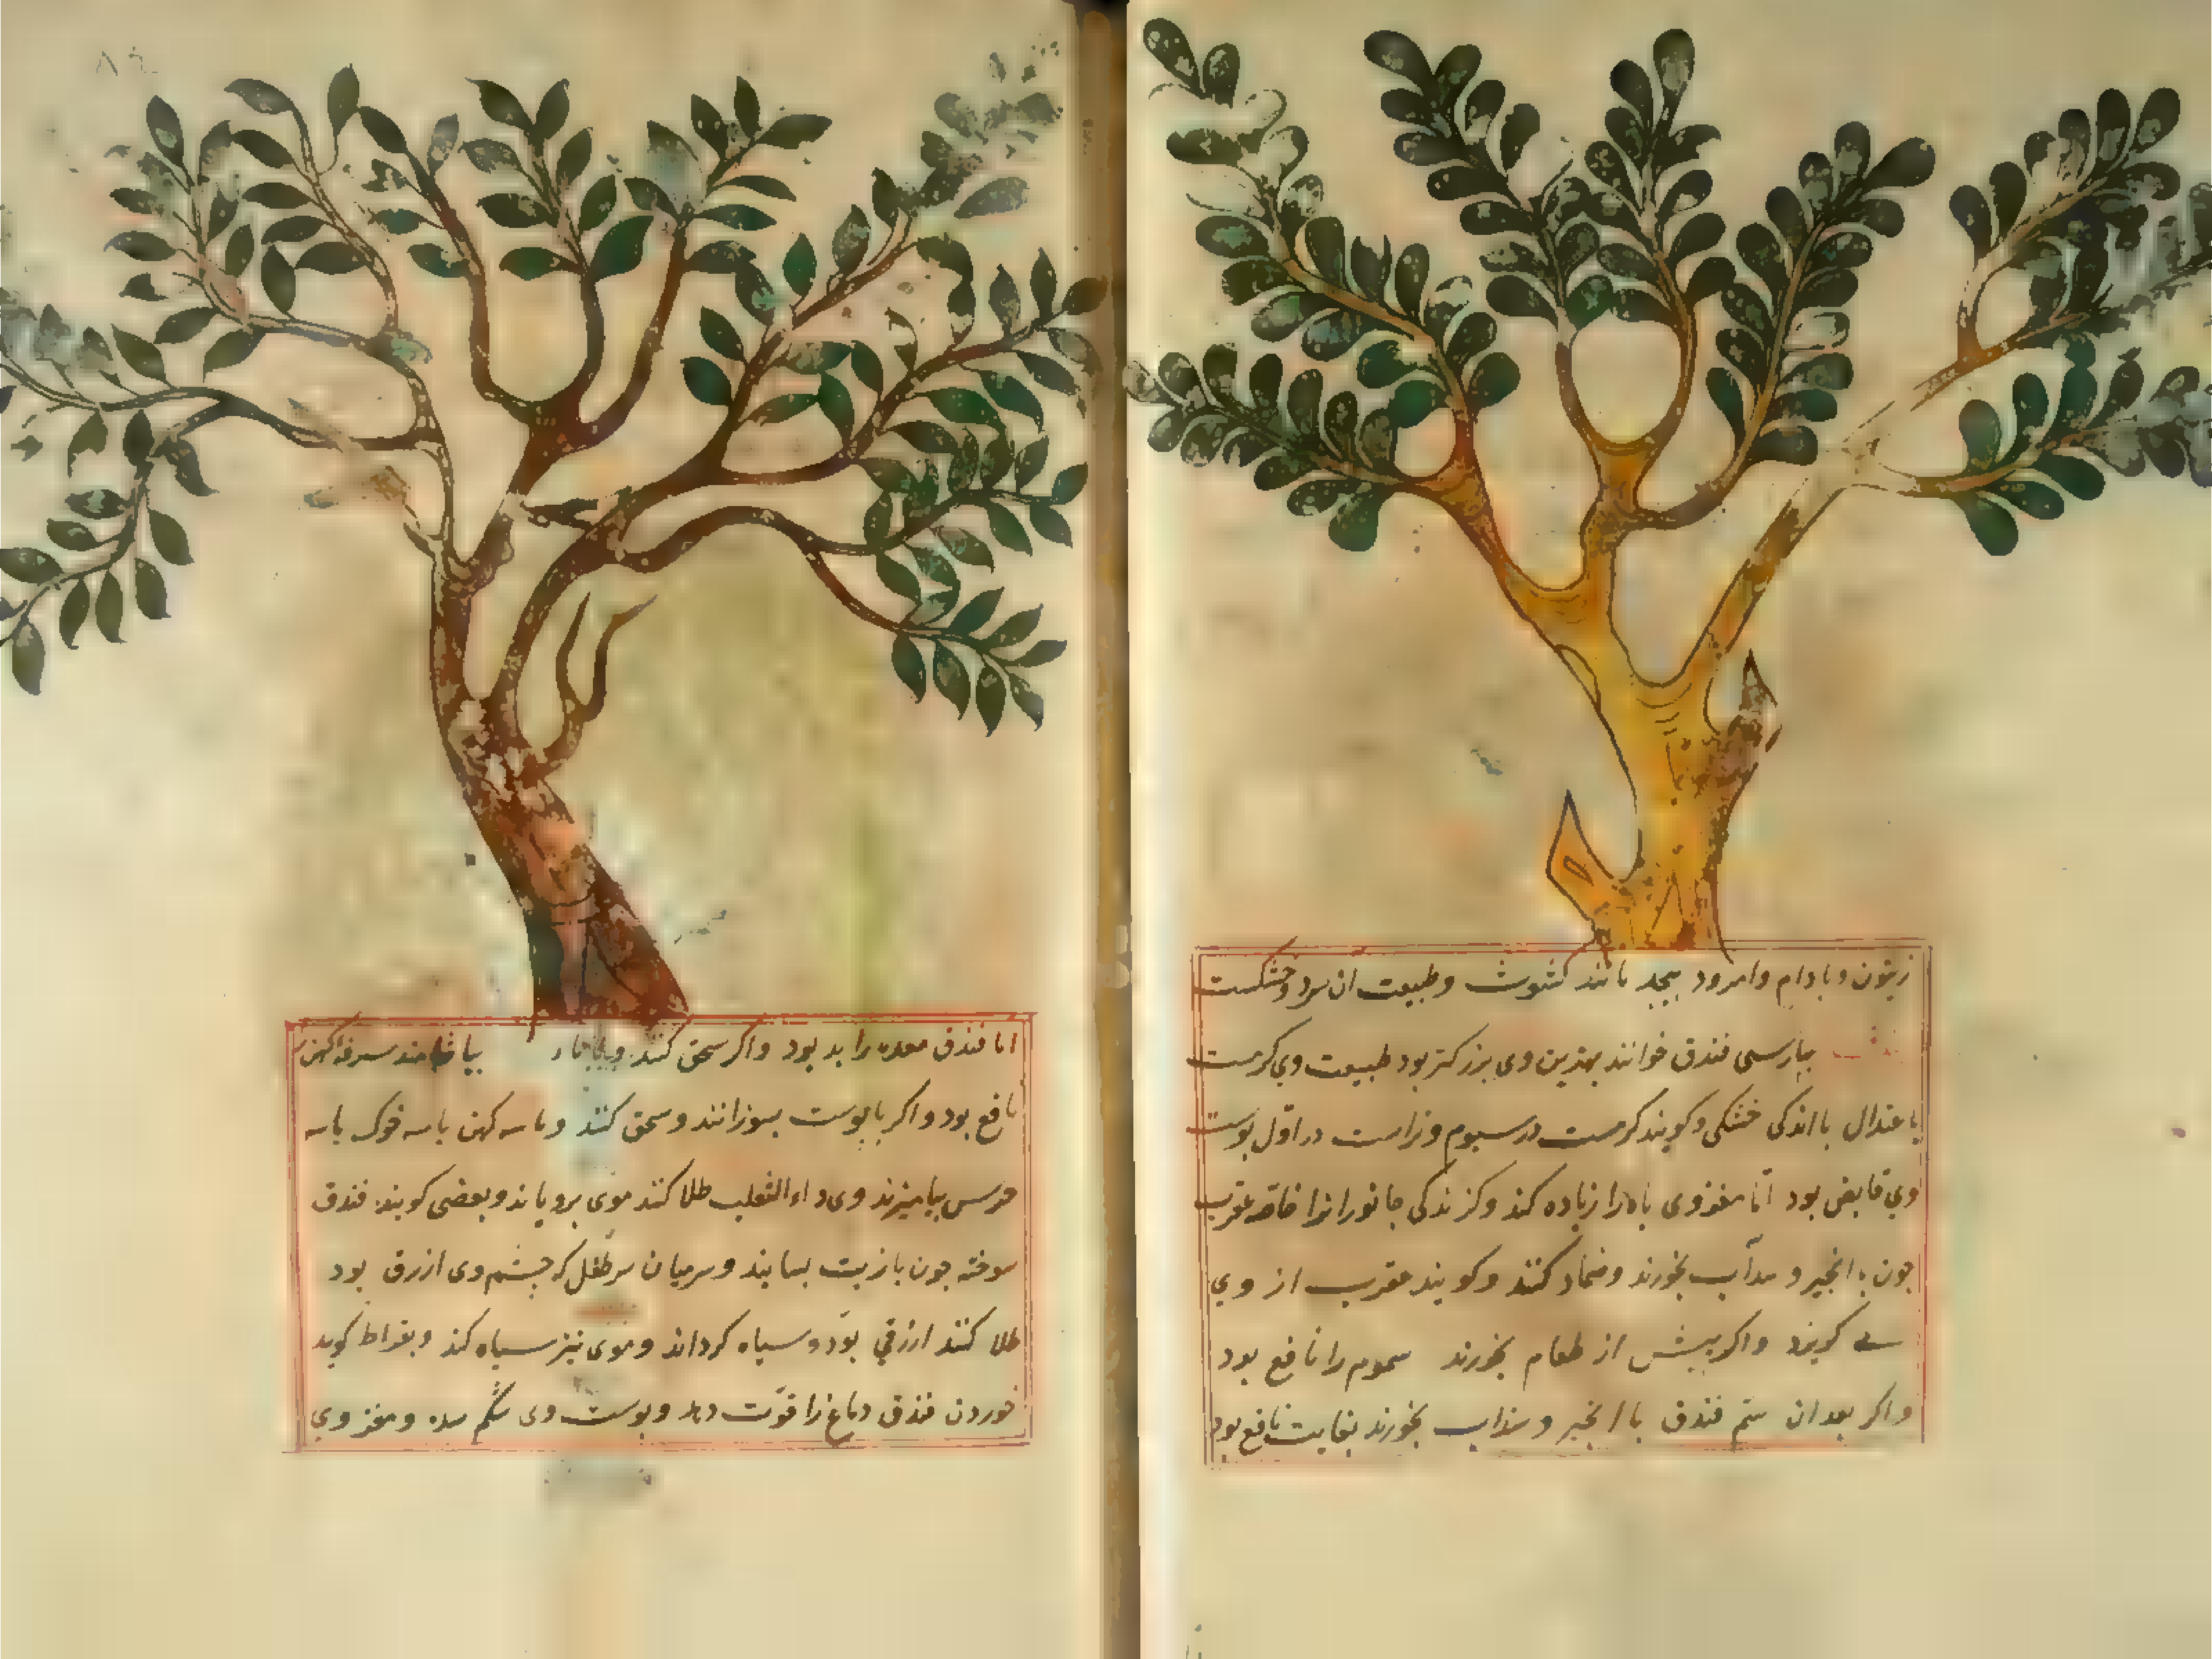 زیتون و بادام و امرود بیجد مانند کشوث و طبیعت ان سرد و خشکست
بپارسی فندق خوانند بهترین وی بزرکتر بود طبیعت وی کرمست
باعتدال با اندکی خشکی و کویند کرمست در سیوم و تراست در اول پوست
وی قابض بود اما مغز وی باه را زیاده کند و کزندکی جانورانرا خاصه عقرب
جون با انجیر و سدآب بخورند و ضماد کنند و کویند عقرب از وی
کریزد و اکر پیش از طعام بخورند سموم را نافع بود
و اکر بعد ان سم فندق با انجیر و سذاب بخورند بغایت نافع بود
اما فندق معده را بد بود و اکر سحق کنند بیاشامند سرفه کهن
نافع بود و اکر با پوست بسوزانند و سحق کنند و با پیه کهن یا پیه خوک یا پیه
خرس بیامیزند و بر داء الثعلب طلا کنند موی برویاند و بعضی کویند فندق
سوخته جون با زیت بسایند و بر میان سر طفل که جشم وی ازرق بود
طلا کنند ازرقی بود و سیاه کرداند و موی نیز سیاه کند و بقراط کوید
خوردن فندق دماغ را قوت دهد و پوست وی شکم ببندد و مغز وی